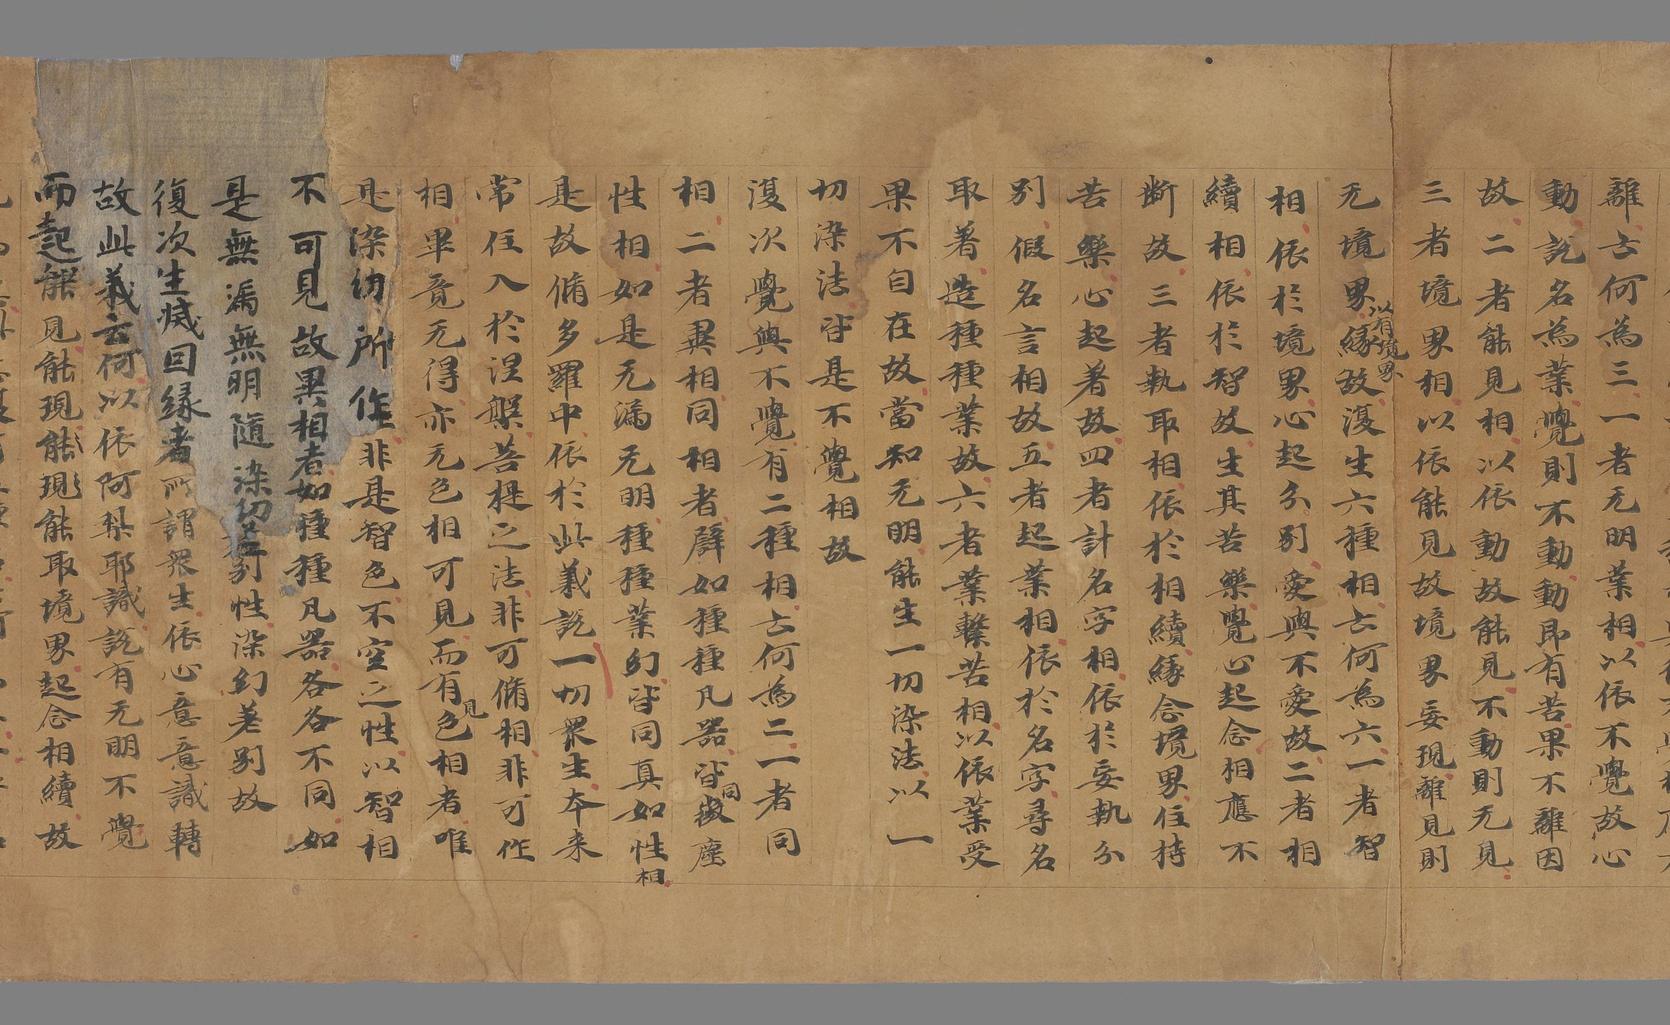 離云何為三一者无明業相以依不覺故心
動說名為業覺則不動動即有苦果不離因
故二者能見相以依動故能見不動則无見
三者境界相以依能見故境界妄現離見則
无境界以有境界緣故復生六種相云何為六一者智
相依於境界心起分別愛與不愛故二者相
續相依於智故生其苦樂覺心起念相應不
断故三者執取相依於相續緣念境界住持
苦樂心起著故四者計名字相依於妄執分
別假名言相故五者起業相依於名字尋名
取著造種種業故六者業繫苦相以依業受
果不自在故當知无明能生一切染法以一
切染法皆是不覺相故
復次覺與不覺有二種相云何為二一者同
相二者異相同相者辟如種種凡器皆同微塵
性相如是无漏无明種種業幻皆同真如性相
是故脩多羅中依於此義說一切眾生本来
常住入於涅槃菩提之法非可脩相非可作
相畢竟无得亦无色相可見而有見色相者唯
是染幼所作非是智色不空之性以智相
不可見故異相者如種種凡器各各不同如
是無漏無明随染幻差別性染幻差別故
復次生滅因緣者所謂眾生依心意意識轉
故此義云何以依阿梨耶識說有无明不覺
而起能見能現能現能取境界起念相續故